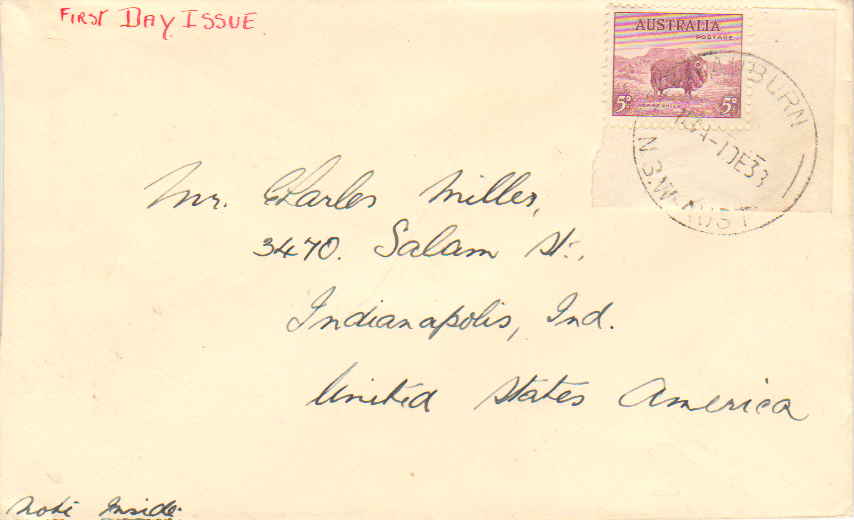 First Day Issue
AUSTRALIA
POSTAGE
5D 5D
AUBURN
1DE38
N.S.W-AUST
Mr. Charles Miller,
3470. Salam St.,
Indianapolis, Ind.
United States America
Note Inside.